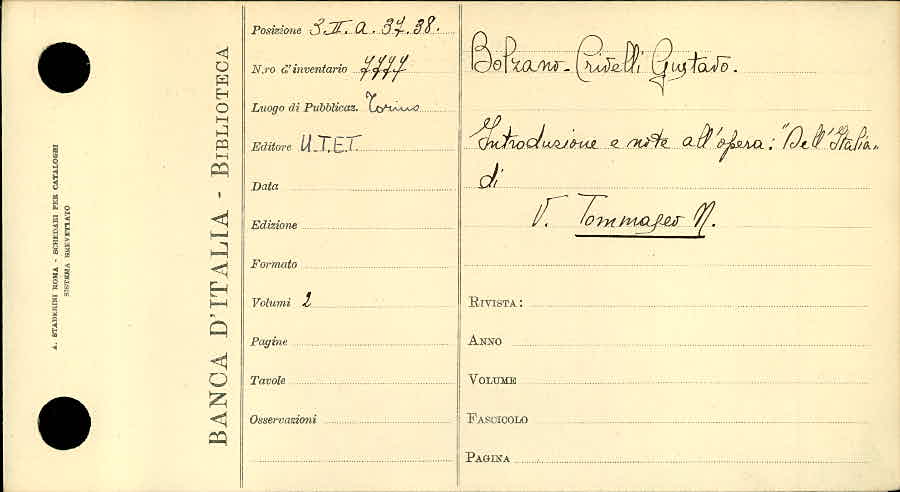 A. STADERINI ROMA - SCHEDARI PER CATALOGHI
SISTEMA BREVETTATO
BANCA D'ITALIA - BIBLIOTECA
Posizione 3.II.a.37.38.
N.ro d'inventario 7777
Luogo di Pubblicaz. Torino
Editore U.T.E.T.
Data
Edizione
Formato
Volumi 2
Pagine
Tavole
Osservazioni
Bolzano-Crivelli Gustavo.
Introduzione e note all'opera: "Dell'Italia"
di
V. Tommaseo N.
RIVISTA:
ANNO
VOLUME
FASCICOLO
PAGINA